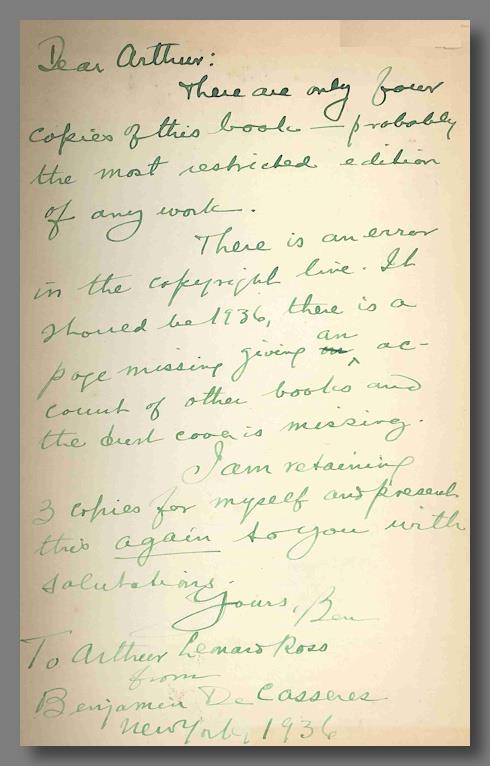 Dear Arthur:
There are only four
copies of this book — probably
the most restricted edition
of any work.
There is an error
in the copyright line. It
should be 1936, there is a
page missing giving an ac-
count of other books and
the dust cover is missing.
I am retaining
3 copies for myself and present
this again to you with
salutations.
Yours, Ben
To Arthur Leonard Ross
from
Benjamin De Casseres
New York, 1936